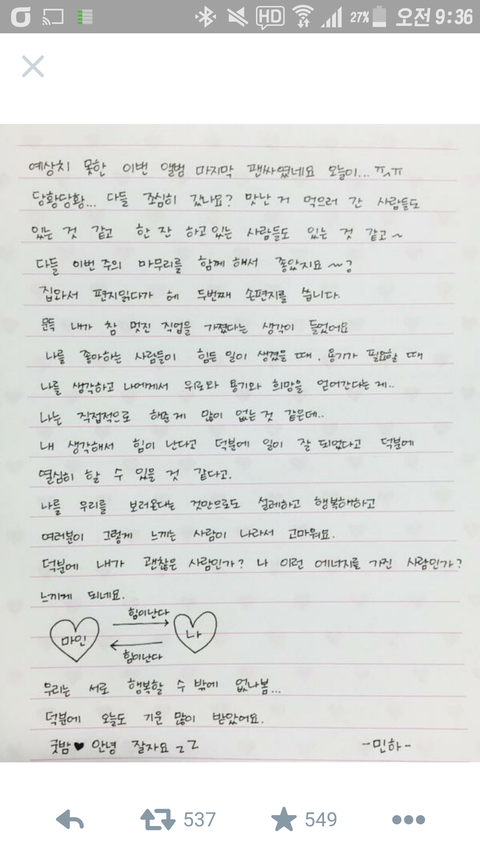 HD 27% 오전 9:36
예상치 못한 이번 앨범 마지막 팬싸였네요 오늘이... ㅠㅅㅠ
당황당황... 다들 조심히 갔나요? 맛난 거 먹으러 간 사람들도
있는 것 같고 한 잔 하고 있는 사람들도 있는 것 같고~
다들 이번 주의 마무리를 함께 해서 좋았지요~?
집와서 편지읽다가 헤 두번째 손편지를 씁니다.
문득 내가 참 멋진 직업을 가졌다는 생각이 들었어요
나를 좋아하는 사람들이 힘든 일이 생겼을 때, 용기가 필요할 때
나를 생각하고 나에게서 위로와 용기와 희망을 얻어간다는 게..
나는 직접적으로 해준 게 많이 없는 것 같은데..
내 생각해서 힘이 난다고 덕분에 일이 잘 되었다고 덕분에
열심히 할 수 있을 것 같다고.
나를 우리를 보러온다는 것만으로도 설레하고 행복해하고
여러분이 그렇게 느끼는 사람이 나라서 고마워요.
덕분에 내가 괜찮은 사람인가? 나 이런 에너지를 가진 사람인가?
느끼게 되네요.
힘이난다
마인 나
힘이난다
우리는 서로 행복할 수 밖에 없나봄...
덕분에 오늘도 기운 많이 받았어요.
굿밤♥ 안녕 잘자요 zz -민하-
537 549